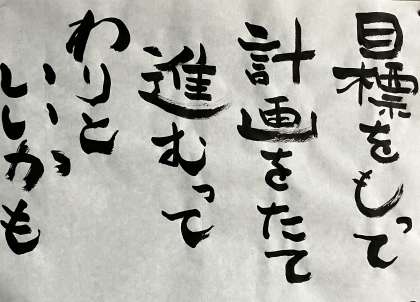 目標をもって
計画をたて
進むって
わりと
いいかも